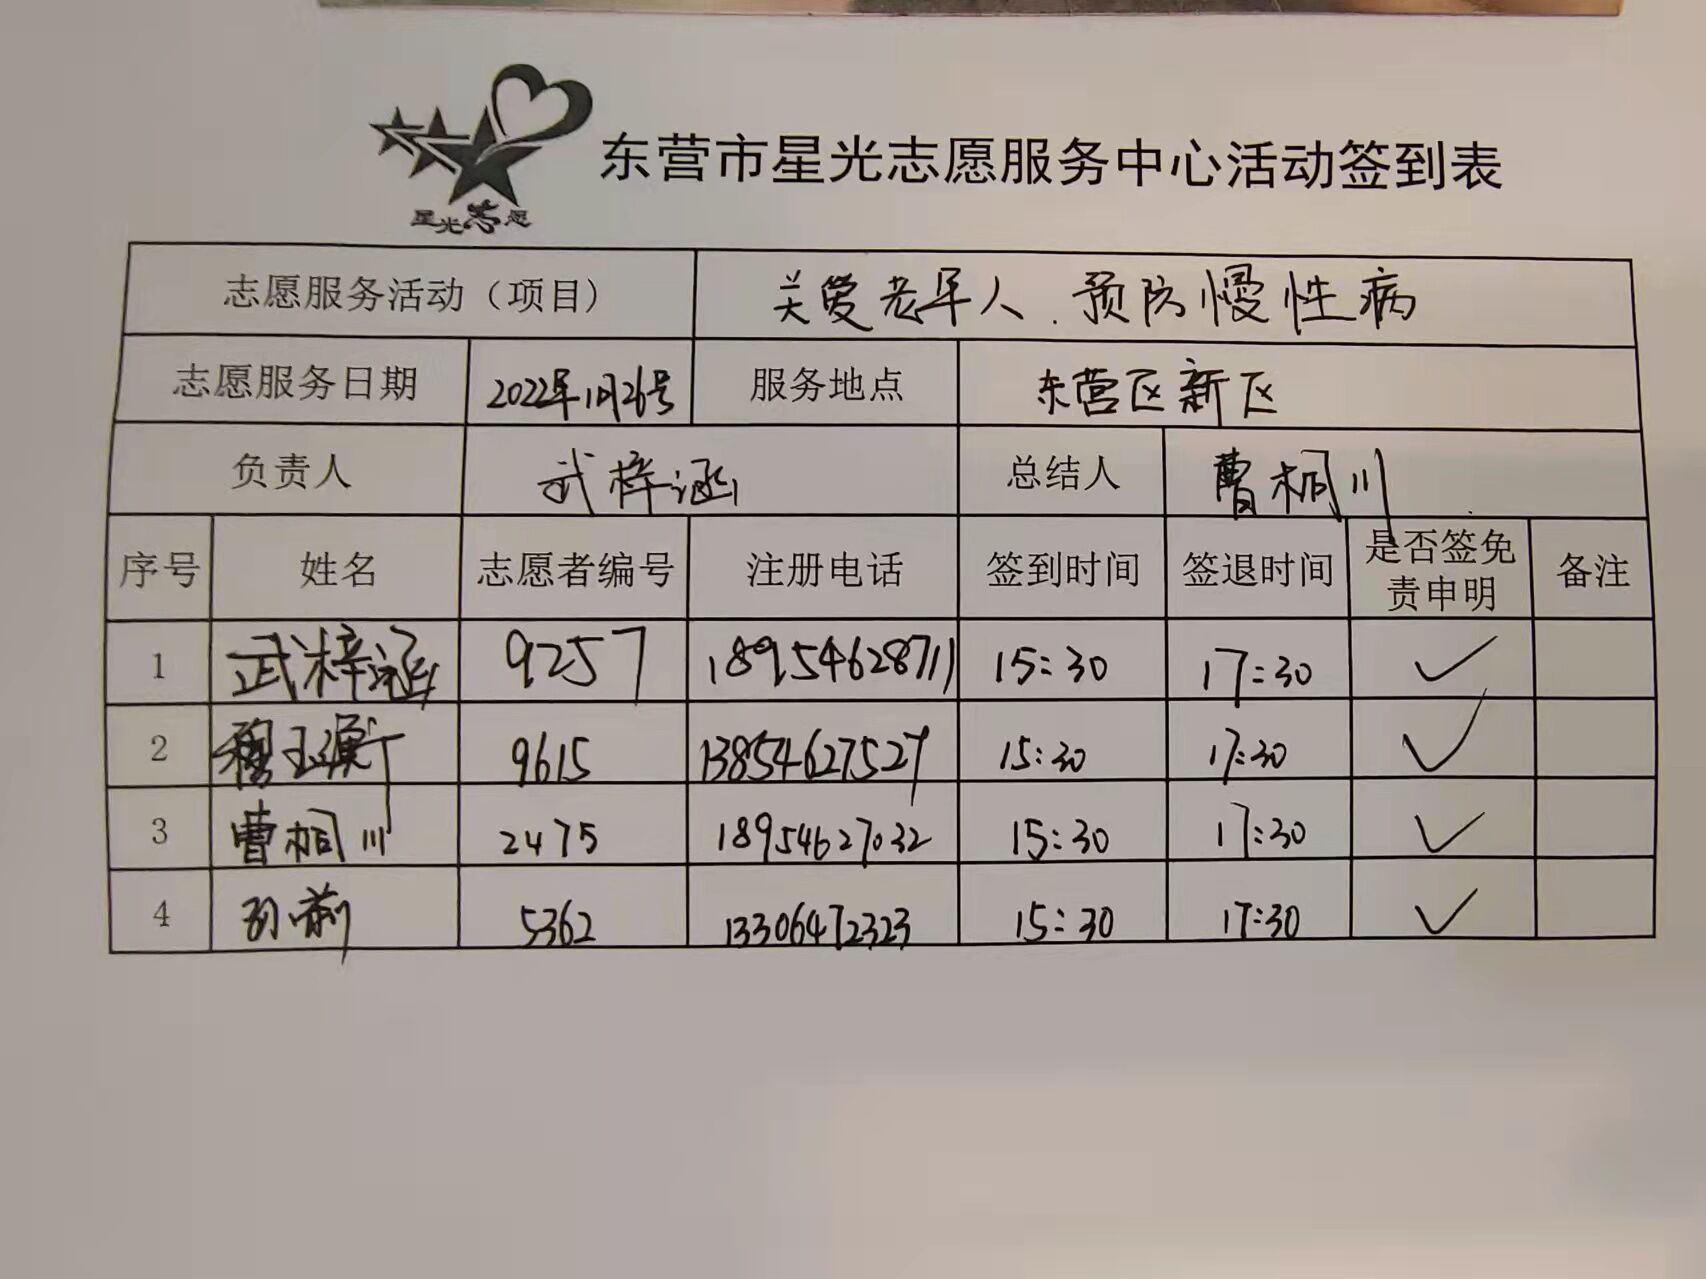 星光志愿
东营市星光志愿服务中心活动签到表
志愿服务活动（项目） 关爱老年人．预防慢性病
志愿服务日期 2022年1月26号 服务地点 东营区新区
负责人 武梓涵 总结人 曹桐川
序号 姓名 志愿者编号 注册电话 签到时间 签退时间 是否签免责申明 备注
1 武梓涵 9257 18954628711 15:30 17:30 ✓
2 穆玉 9615 13854627527 15:30 17:30 ✓
3 曹桐川 2475 18954627032 15:30 17:30 ✓
4 孙 5362 13306472323 15:30 17:30 ✓